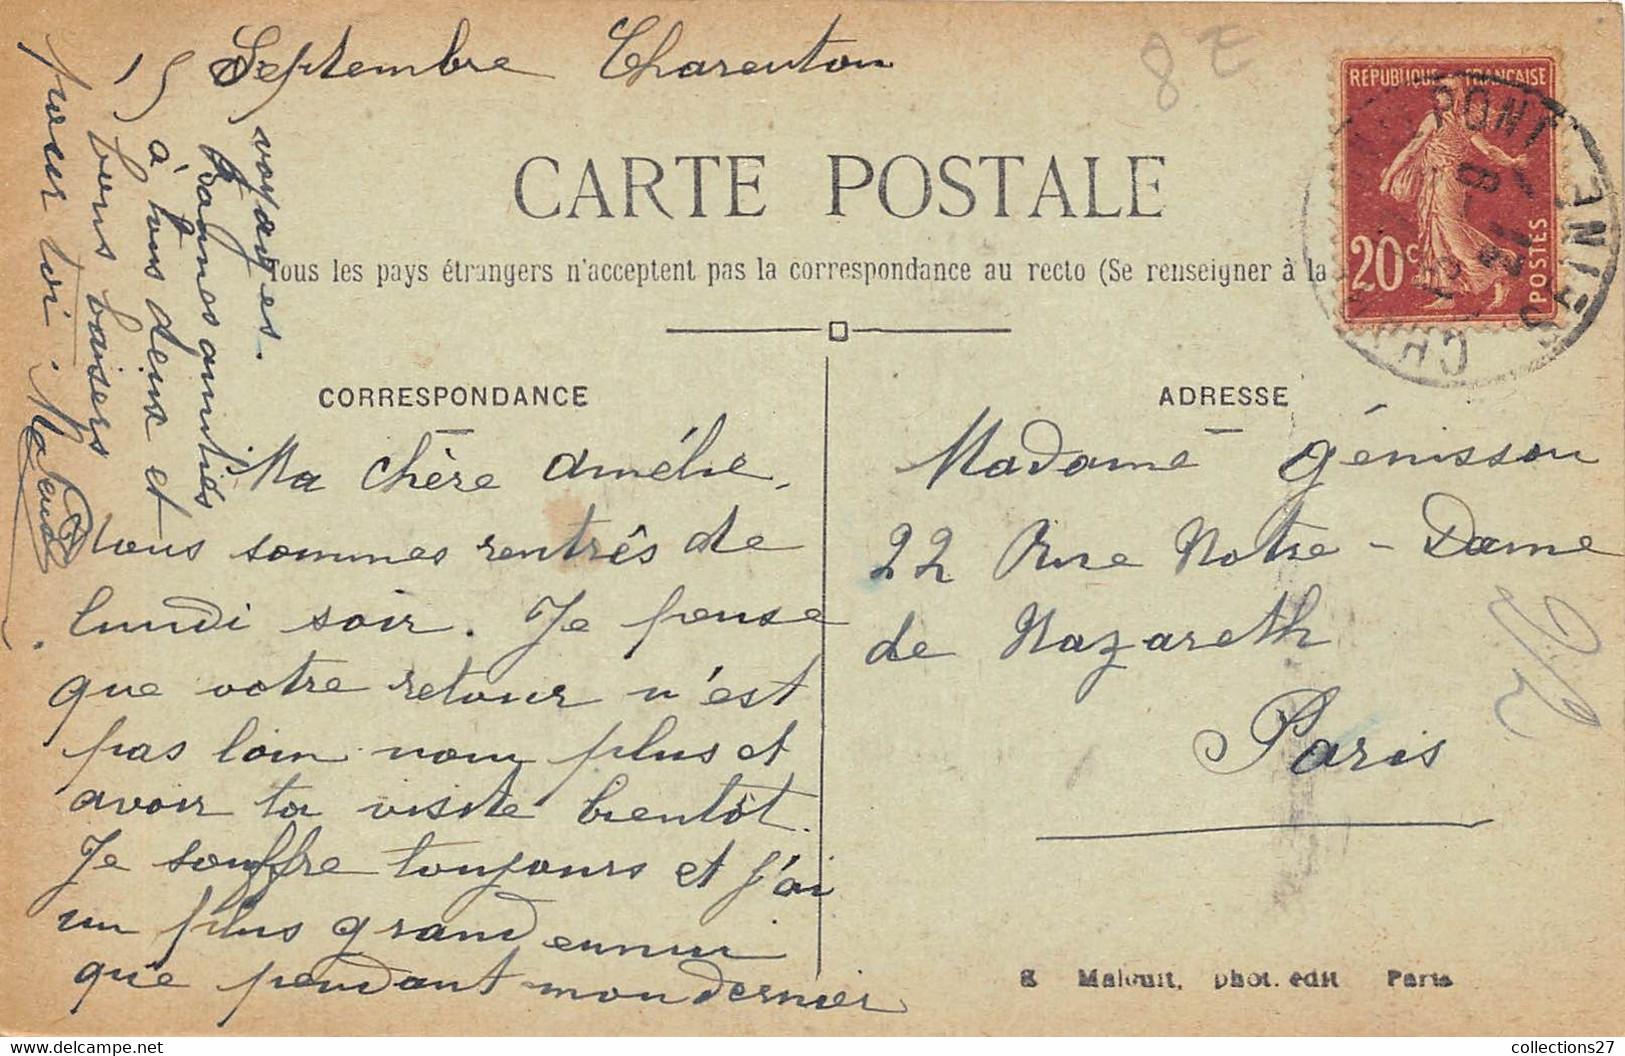 15 Septembre Charenton
CARTE POSTALE
Tous les pays étrangers n'acceptent pas la correspondance au recto (Se renseigner à la
CORRESPONDANCE
Ma chère Amélie,
Nous sommes rentrés de
lundi soir. Je pense
que votre retour n'est
pas loin non plus et
avoir ta visite bientôt.
Je souffre toujours et j'ai
un plus grand ennui
que pendant mon dernier
voyages.
Bonnes amitiés
à tous deux et
bons baisers
pour toi.
ADRESSE
Madame Génisson
22 Rue Notre-Dame
de Nazareth
Paris
REPUBLIQUE FRANÇAISE
20c
POSTES
PONT
SEINE
8 E
Malcuit, phot. edit Paris
collections27